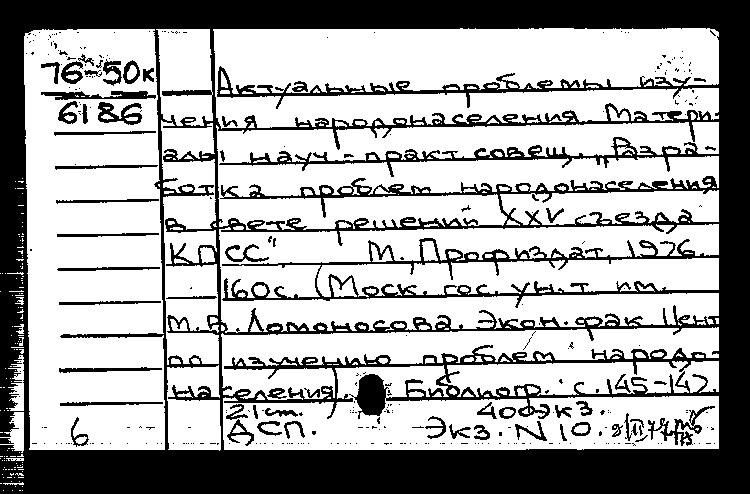 76-50к
6186
Актуальные проблемы изу-
чения народонаселения. Матери-
алы науч.-практ. совещ. „Разра-
ботка проблем народонаселения
в свете решений XXV съезда
КПСС" М., Профиздат, 1976.
160с. (Моск. гос. ун-т им.
М.В. Ломоносова. Экон. фак. Цент
по изучению проблем народо-
населения). Библиогр.: с. 145-147.
21 cm. 400экз.
6 ДСП. Экз. N 10.